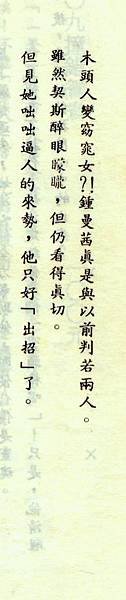 木頭人變窈窕女?!鍾曼茜真是與以前判若兩人。
雖然契斯醉眼矇矓，但仍看得真切。
但見她咄咄逼人的來勢，他只好「出招」了。